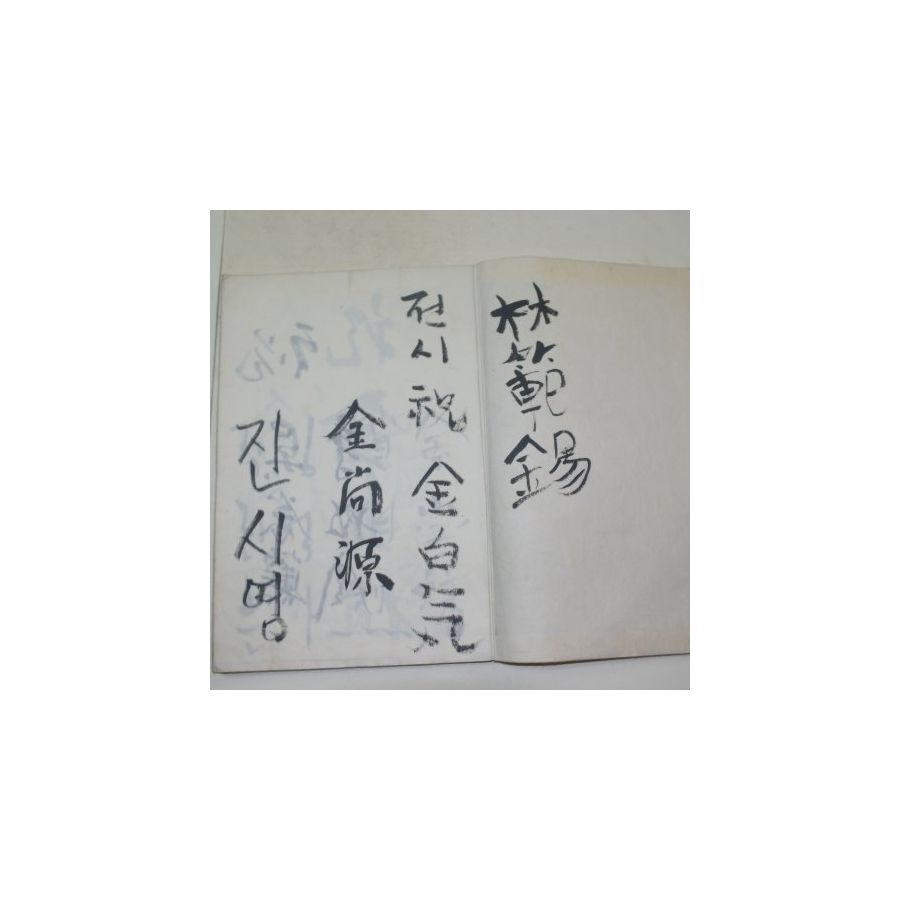 林範錫
전시 祝 金白
金尚源
진시명